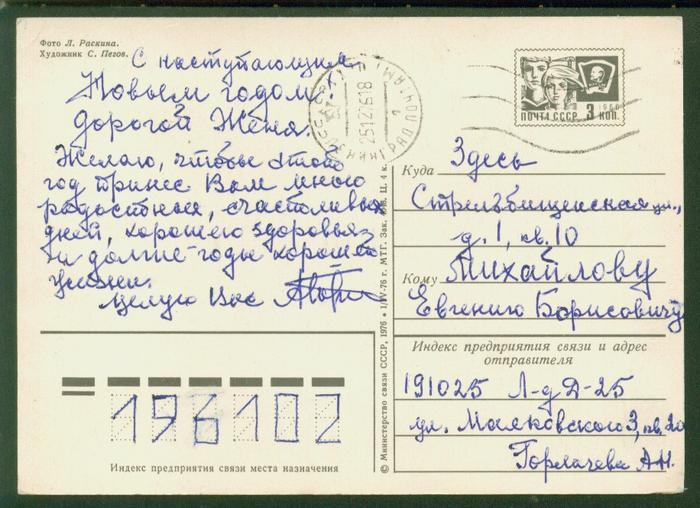 Фото Л. Раскина.
Художник С. Пегов.
С наступающим
Новым годом
дорогой Женя.
Желаю, чтобы этот
год принес Вам много
радостных, счастливых
дней, хорошего здоровья
и долгие годы хорошей
жизни.
Целую Вас
ПОЧТА СССР 3 КОП.
1966
ЛЕНИНГРАД ПОЧТАМТ
251276 18
1
Куда Здесь
Стрельбищенская ул.,
д. 1, кв. 10
Кому Михайлову
Евгению Борисовичу
Индекс предприятия связи и адрес
отправителя
191025 Л-д Д-25
ул. Маяковского 3, кв. 20
Горлачева А.Н.
196102
Индекс предприятия связи места назначения
© Министерство связи СССР, 1976 • 1/IV-76 г. МТГ. Зак. Ц. 4 к.